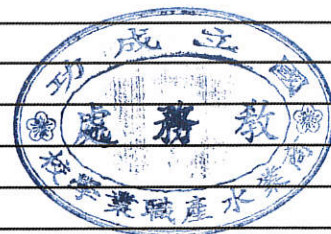 國立成功
商業水產職業學校
教務處